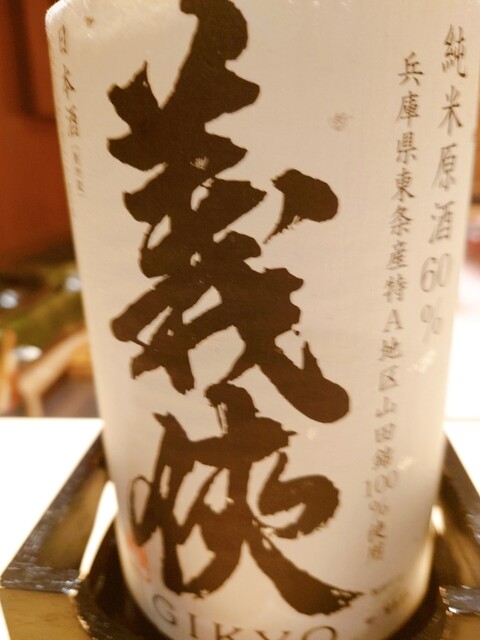 純米原酒60%
兵庫県東条産特A地区山田錦100%使用
義侠
日本酒
GIKYO